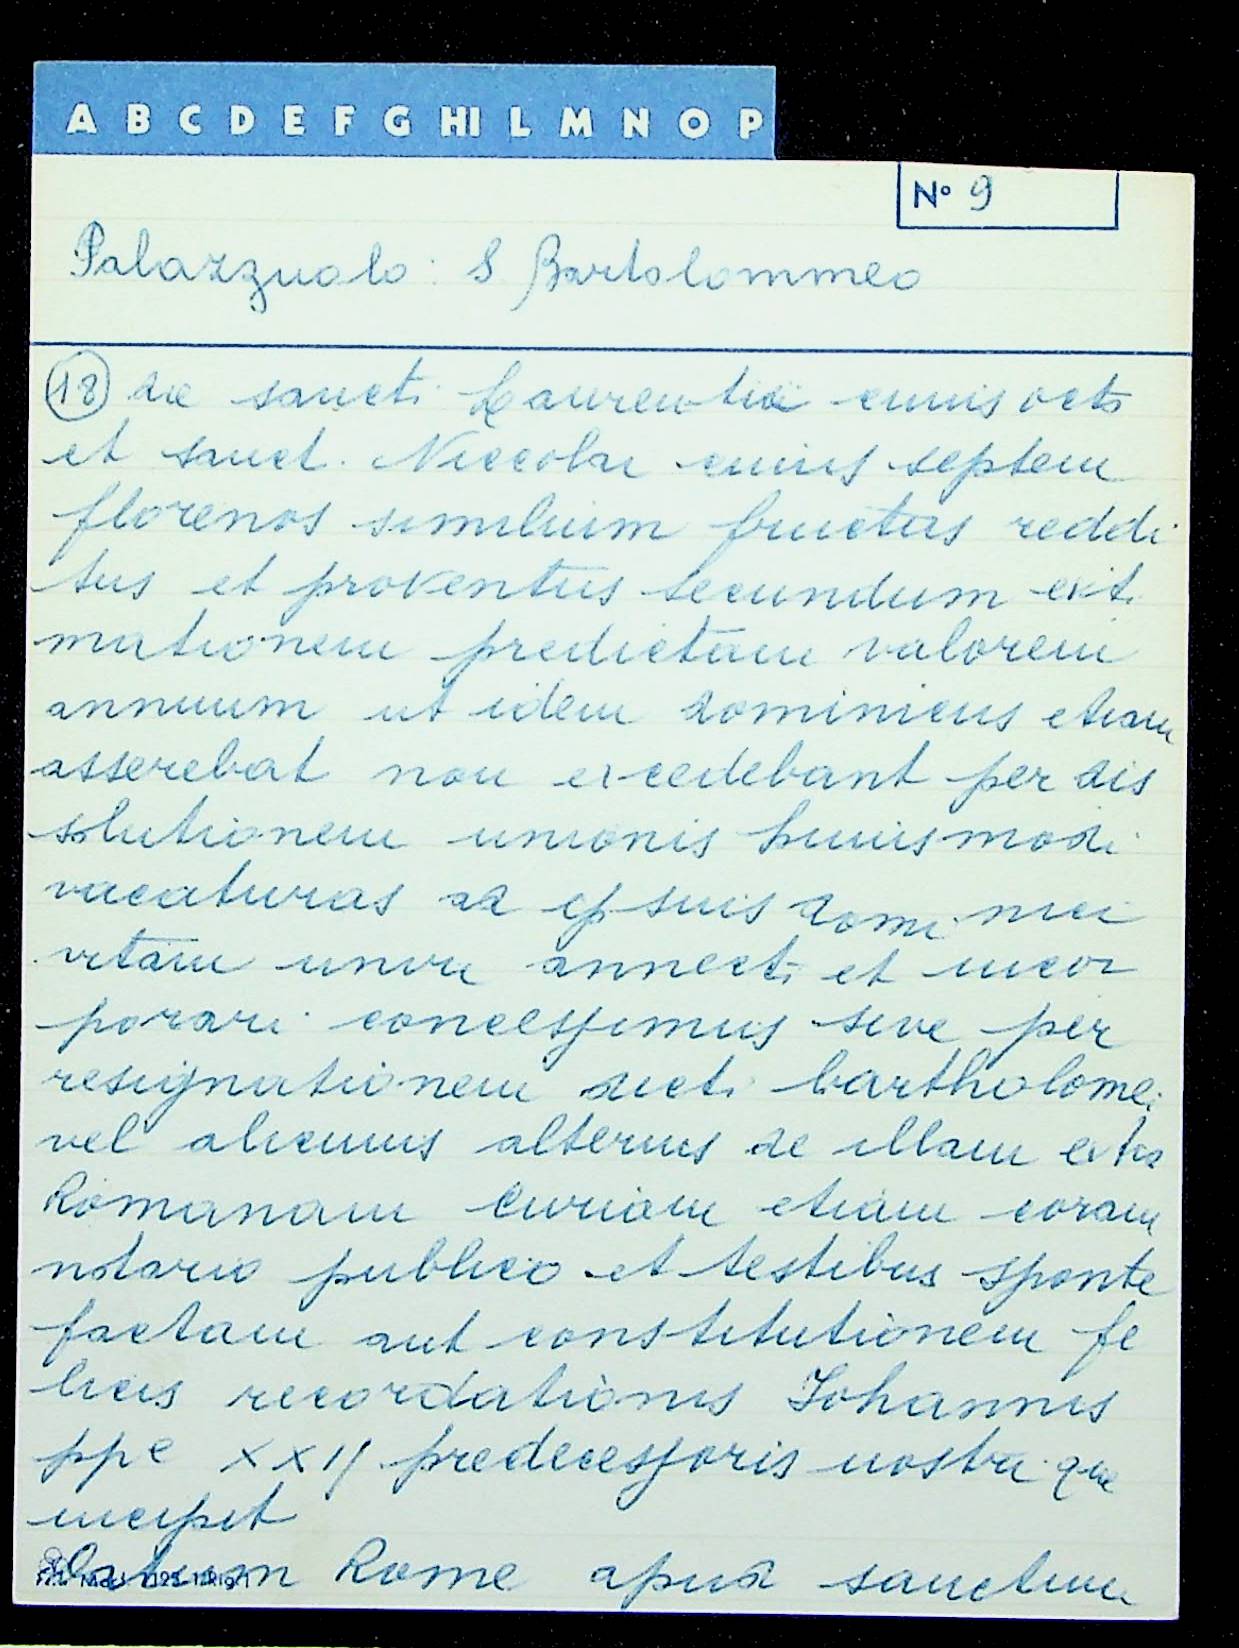 A B C D E F G HI L M N O P
Nº 9
Palazzuolo: S Bartolommeo
18 de sancti Laurentii cuius octo
et sanct. Niccolai cuius septem
florenos similium fructus reddi
tus et proventus secundum exti
mationem predictam valorem
annuum ut idem dominicus etiam
asserebat non excedebant per dis
solutionem unionis huiusmodi
vacaturas ad ipsuis domi nici
vitam uniri annecti et incor
porari concessimus sive per
resignationem dicti bartholomei
vel alicuius alterius de illam extra
Romanam Curiam etiam coram
notario publico et testibus sponte
factam aut constitutionem fe
licis recordationis Johannis
ppe XXII predecessoris nostri que
incipit
Datum Rome apud sanctum